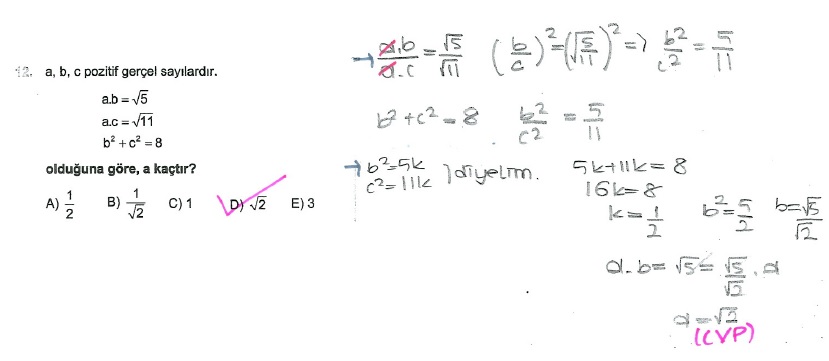 12. a, b, c pozitif gerçel sayılardır.
a.b = √5
a.c = √11
b² + c² = 8
olduğuna göre, a kaçtır?
A) 1/2 B) 1/√2 C) 1 D) √2 E) 3
→ a.b/a.c = √5/√11 (b/c)² = (√5/√11)² => b²/c² = 5/11
b² + c² = 8 b²/c² = 5/11
→ b² = 5k
c² = 11k } diyelim.
5k + 11k = 8
16k = 8
k = 1/2 b² = 5/2 b = √5/√2
a.b = √5 = √5/√2 . a
a = √2
(CVP)